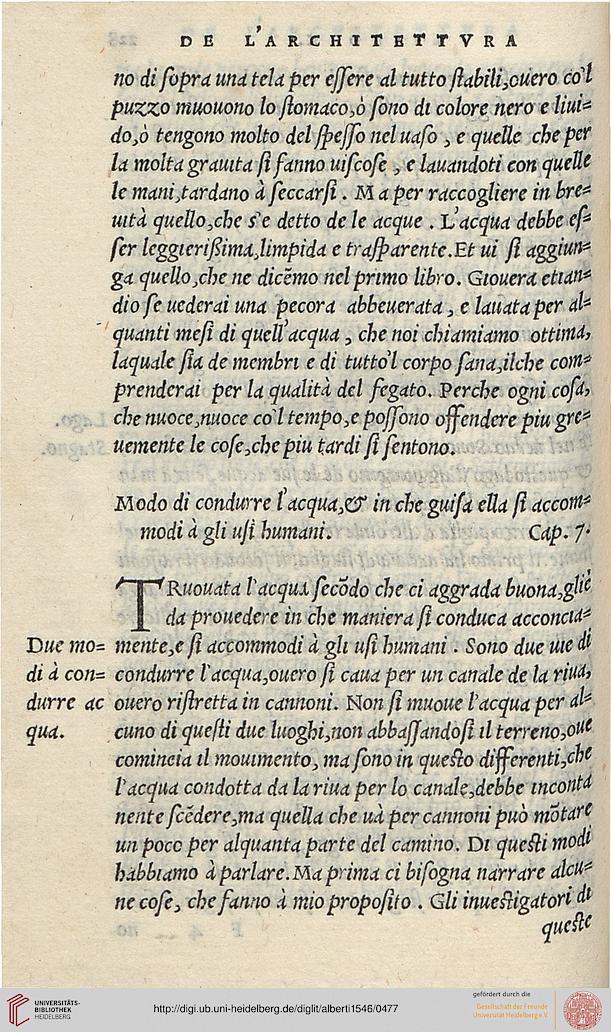 DE L'ARCHITETTVRA
no di ſopra una tela per eſſere al tutto ſtabili,ouero co'l
puzzo muouono lo ſtomaco,ò ſono di colore nero e liui=
do,ò tengono molto del ſpeſſo nel uaſo , e quelle che per
la molta grauita ſi fanno uiſcoſe , e lauandoti con quelle
le mani,tardano à ſeccarſi . Ma per raccogliere in bre=
uità quello,che s'e detto de le acque . L'acqua debbe eſ=
ſer leggierißima,limpida e traſparente.Et ui ſi aggiun=
ga quello,che ne dicẽmo nel primo libro. Giouera etian=
dio ſe uederai una pecora abbeuerata , e lauata per al=
quanti meſi di quell'acqua , che noi chiamiamo ottima,
laquale ſia de membri e di tutto'l corpo ſana,ilche com=
prenderai per la qualità del fegato. Perche ogni coſa,
che nuoce,nuoce co'l tempo,e poſſono offendere piu gre=
uemente le coſe,che piu tardi ſi ſentono.
Modo di condurre l'acqua,& in che guiſa ella ſi accom=
modi à gli uſi humani. Cap. 7.
TRuouata l'acqua ſecõdo che ci aggrada buona,gliè
da prouedere in che maniera ſi conduca acconcia=
Due mo=
di à con=
durre ac
qua.
mente,e ſi accommodi à gli uſi humani . Sono due uie di
condurre l'acqua,ouero ſi caua per un canale de la riua,
ouero riſtretta in cannoni. Non ſi muoue l'acqua per al=
cuno di queſti due luoghi,non abbaſſandoſi il terreno,oue
comincia il mouimento, ma ſono in queſto differenti,che
l'acqua condotta da la riua per lo canale,debbe inconta
nente ſcẽdere,ma quella che uà per cannoni può mõtare
un poco per alquanta parte del camino. Di queſti modi
habbiamo à parlare.Ma prima ci biſogna narrare alcu=
ne coſe, che fanno à mio propoſito . Gli inueſtigatori di
queſte
UNIVERSITÄTS-
BIBLIOTHEK
HEIDELBERG
http://digi.ub.uni-heidelberg.de/diglit/alberti1546/0477
gefördert durch die
Gesellschaft der Freunde
Universität Heidelberg e.V.